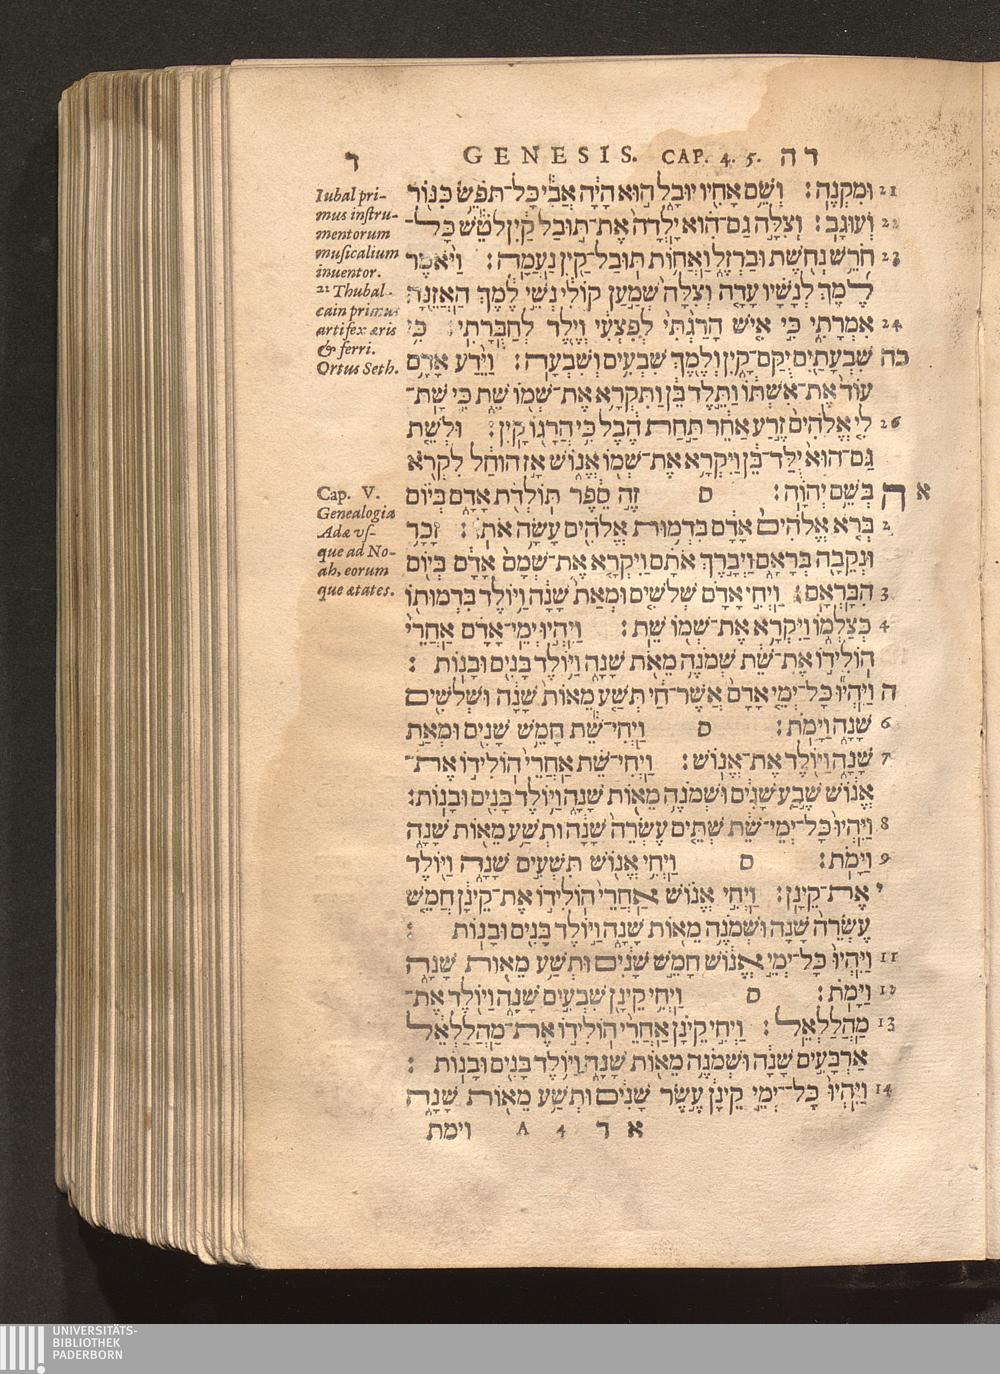 ד GENESIS. CAP. 4. 5. ד ה
וּמִקְנֶה׃ וְשֵׁם אָחִיו יוּבָל הוּא הָיָה אֲבִי כָּל־תֹּפֵשׂ כִּנּוֹר 21
וְעוּגָב׃ וְצִלָּה גַם־הִוא יָלְדָה אֶת־תּוּבַל קַיִן לֹטֵשׁ כָּל־ 22
חֹרֵשׁ נְחֹשֶׁת וּבַרְזֶל וַאֲחוֹת תּוּבַל־קַיִן נַעֲמָה׃ וַיֹּאמֶר 23
לֶמֶךְ לְנָשָׁיו עָדָה וְצִלָּה שְׁמַעַן קוֹלִי נְשֵׁי לֶמֶךְ הַאֲזֵנָּה
אִמְרָתִי כִּי אִישׁ הָרַגְתִּי לְפִצְעִי וְיֶלֶד לְחַבֻּרָתִי׃ כִּי 24
שִׁבְעָתַיִם יֻקַּם־קָיִן וְלֶמֶךְ שִׁבְעִים וְשִׁבְעָה׃ וַיֵּדַע אָדָם כה
עוֹד אֶת־אִשְׁתּוֹ וַתֵּלֶד בֵּן וַתִּקְרָא אֶת־שְׁמוֹ שֵׁת כִּי שָׁת־
לִי אֱלֹהִים זֶרַע אַחֵר תַּחַת הֶבֶל כִּי הֲרָגוֹ קָיִן׃ וּלְשֵׁת 26
גַּם־הוּא יֻלַּד־בֵּן וַיִּקְרָא אֶת־שְׁמוֹ אֱנוֹשׁ אָז הוּחַל לִקְרֹא
בְּשֵׁם יְהוָה׃ ס זֶה סֵפֶר תּוֹלְדֹת אָדָם בְּיוֹם ה א
בְּרֹא אֱלֹהִים אָדָם בִּדְמוּת אֱלֹהִים עָשָׂה אֹתוֹ׃ זָכָר 2
וּנְקֵבָה בְּרָאָם וַיְבָרֶךְ אֹתָם וַיִּקְרָא אֶת־שְׁמָם אָדָם בְּיוֹם
הִבָּרְאָם׃ וַיְחִי אָדָם שְׁלֹשִׁים וּמְאַת שָׁנָה וַיּוֹלֶד בִּדְמוּתוֹ 3
כְּצַלְמוֹ וַיִּקְרָא אֶת־שְׁמוֹ שֵׁת׃ וַיִּהְיוּ יְמֵי־אָדָם אַחֲרֵי 4
הוֹלִידוֹ אֶת־שֵׁת שְׁמֹנֶה מֵאֹת שָׁנָה וַיּוֹלֶד בָּנִים וּבָנוֹת׃
וַיִּהְיוּ כָּל־יְמֵי אָדָם אֲשֶׁר־חַי תְּשַׁע מֵאוֹת שָׁנָה וּשְׁלֹשִׁים ה
שָׁנָה וַיָּמֹת׃ ס וַיְחִי־שֵׁת חָמֵשׁ שָׁנִים וּמְאַת 6
שָׁנָה וַיּוֹלֶד אֶת־אֱנוֹשׁ׃ וַיְחִי־שֵׁת אַחֲרֵי הוֹלִידוֹ אֶת־ 7
אֱנוֹשׁ שֶׁבַע שָׁנִים וּשְׁמֹנֶה מֵאוֹת שָׁנָה וַיּוֹלֶד בָּנִים וּבָנוֹת׃
וַיִּהְיוּ כָּל־יְמֵי־שֵׁת שְׁתֵּים עֶשְׂרֵה שָׁנָה וּתְשַׁע מֵאוֹת שָׁנָה 8
וַיָּמֹת׃ ס וַיְחִי אֱנוֹשׁ תִּשְׁעִים שָׁנָה וַיּוֹלֶד 9
אֶת־קֵינָן׃ וַיְחִי אֱנוֹשׁ אַחֲרֵי הוֹלִידוֹ אֶת־קֵינָן חֲמֵשׁ י
עֶשְׂרֵה שָׁנָה וּשְׁמֹנֶה מֵאוֹת שָׁנָה וַיּוֹלֶד בָּנִים וּבָנוֹת׃
וַיִּהְיוּ כָּל־יְמֵי אֱנוֹשׁ חָמֵשׁ שָׁנִים וּתְשַׁע מֵאוֹת שָׁנָה 11
וַיָּמֹת׃ ס וַיְחִי קֵינָן שִׁבְעִים שָׁנָה וַיּוֹלֶד אֶת־ 12
מַהֲלַלְאֵל׃ וַיְחִי קֵינָן אַחֲרֵי הוֹלִידוֹ אֶת־מַהֲלַלְאֵל 13
אַרְבָּעִים שָׁנָה וּשְׁמֹנֶה מֵאוֹת שָׁנָה וַיּוֹלֶד בָּנִים וּבָנוֹת׃
וַיִּהְיוּ כָּל־יְמֵי קֵינָן עֶשֶׂר שָׁנִים וּתְשַׁע מֵאוֹת שָׁנָה 14
וימת A 4 א ד
Iubal pri-
mus inſtru-
mentorum
muſicalium
inuentor.
22 Thubal-
cain primus
artifex æris
& ferri.
Ortus Seth.
Cap. V.
Genealogia
Adæ vſ-
que ad No-
ah, eorum
que ætates.
UNIVERSITÄTS-
BIBLIOTHEK
PADERBORN